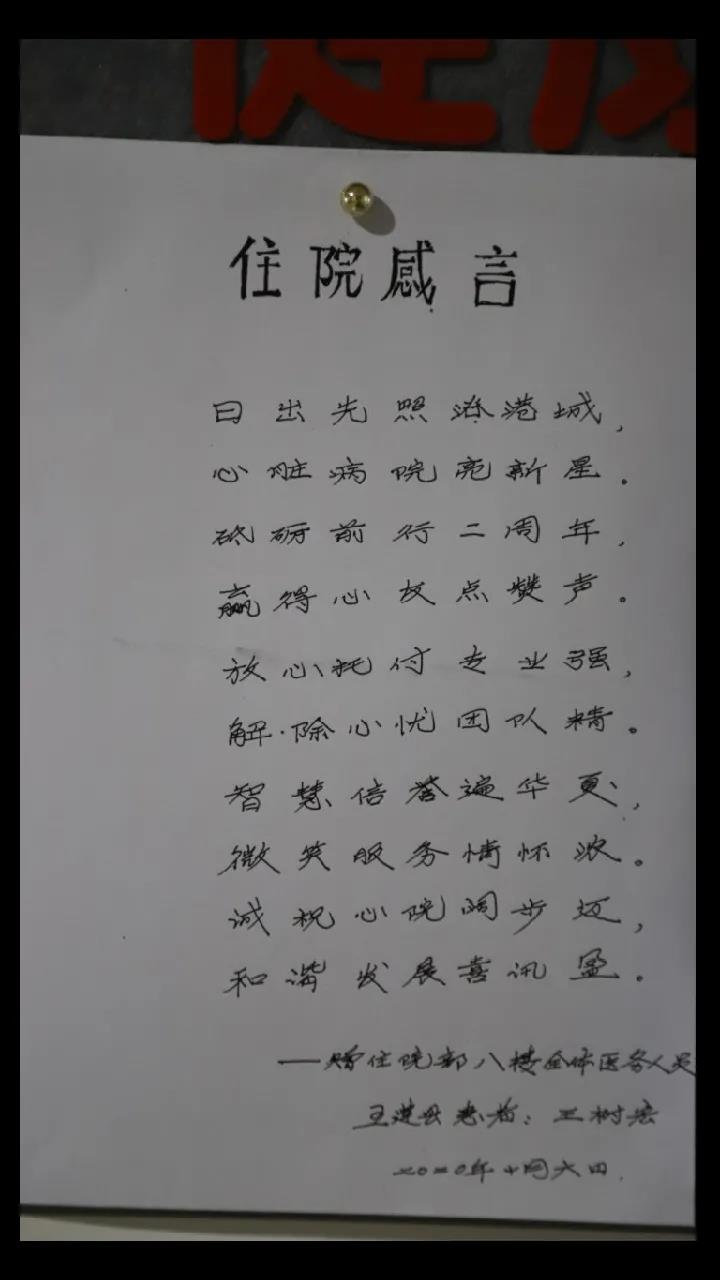 住院感言
日出先照港城，
心脏病院亮新星。
砥砺前行二周年，
赢得心友点赞声。
放心托付专业强，
解除心忧团队精。
智慧信誉遍华夏，
微笑服务情怀浓。
诚祝心院阔步迈，
和谐发展喜讯盈。
——赠住院部八楼全体医务人员
患者：王树
二〇二〇年十月六日.